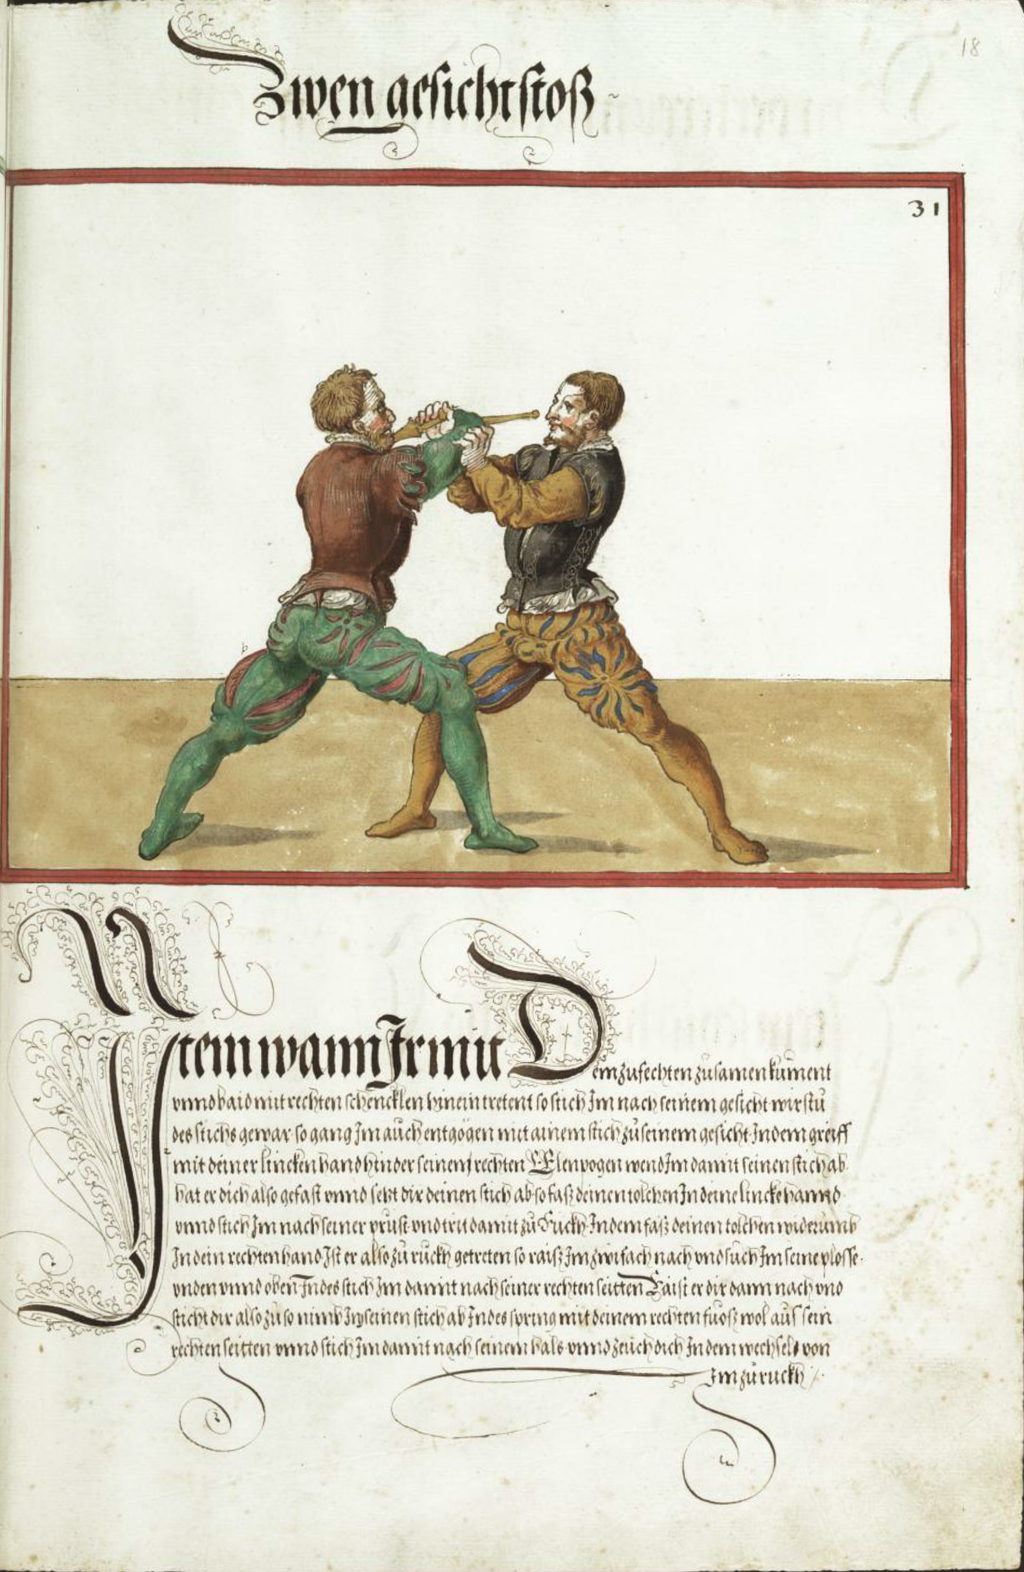 18
Zwen gesicht stoß
31
Item wann Ir mit Dem zu fechten zusamen kument
vnnd baid mit rechten schencklen hinein tretent so stich Im nach seinem gesicht wirstu
des stichs gewar so gang Im auch entgögen mit ainem stich zu seinem gesicht Indem greiff
mit deiner lincken hand hinder seinem rechten Elenpogen wend Im damit seinen stich ab
hat er dich also gefast vnnd setzt dir deinen stich ab so faß deinen tolchen In deine lincke hannd
vnnd stich Im nach seiner prust vnd trit damit zu Ruckh Indem faß deinen tolchen widerumb
In dein rechten hand Ist er also zu ruckh getreten so raiß Im zwifach nach vnd such Im seine plosse
vnden vnnd oben Indes stich Im damit nach seiner rechten seitten Raist er dir dann nach vnd
sticht dir also zu so nimb Im seinen stich ab Indes spring mit deinem rechten fuosz wol aus sein
rechten seitten vnnd stich Im damit nach seinem hals vnnd zeuch dich Indem wechsels von
Im zuruckh